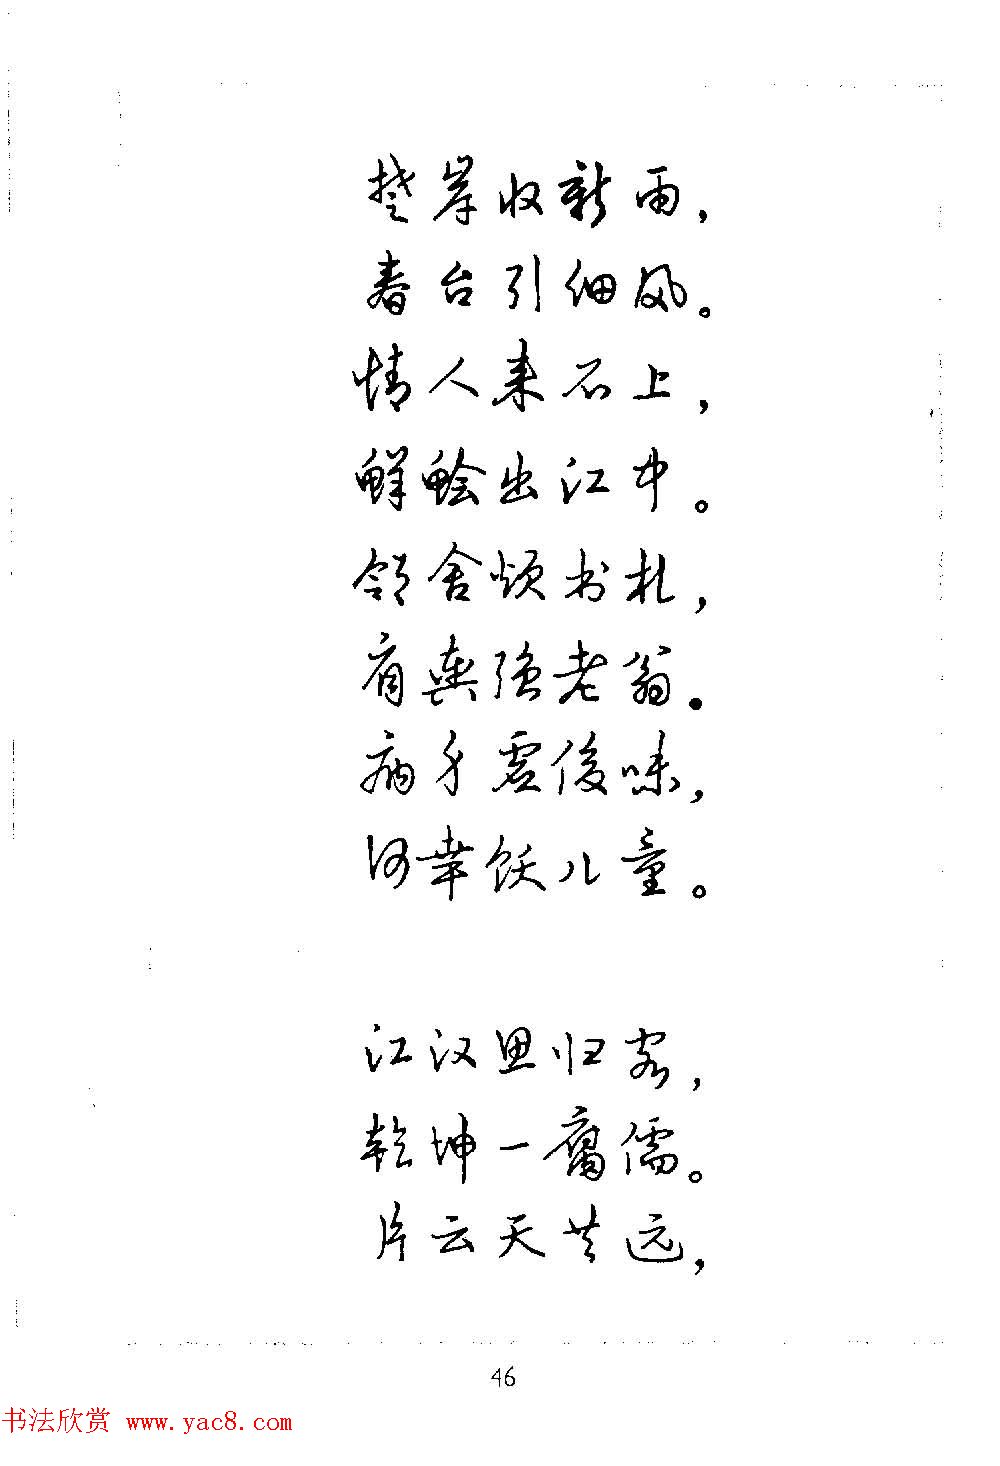 楚岸收新雨，
春台引细风。
情人来石上，
鲜鲙出江中。
邻舍烦书札，
肩舆强老翁。
病身虚俊味，
何幸饫儿童。
江汉思归客，
乾坤一腐儒。
片云天共远，
46
书法欣赏 www.yac8.com